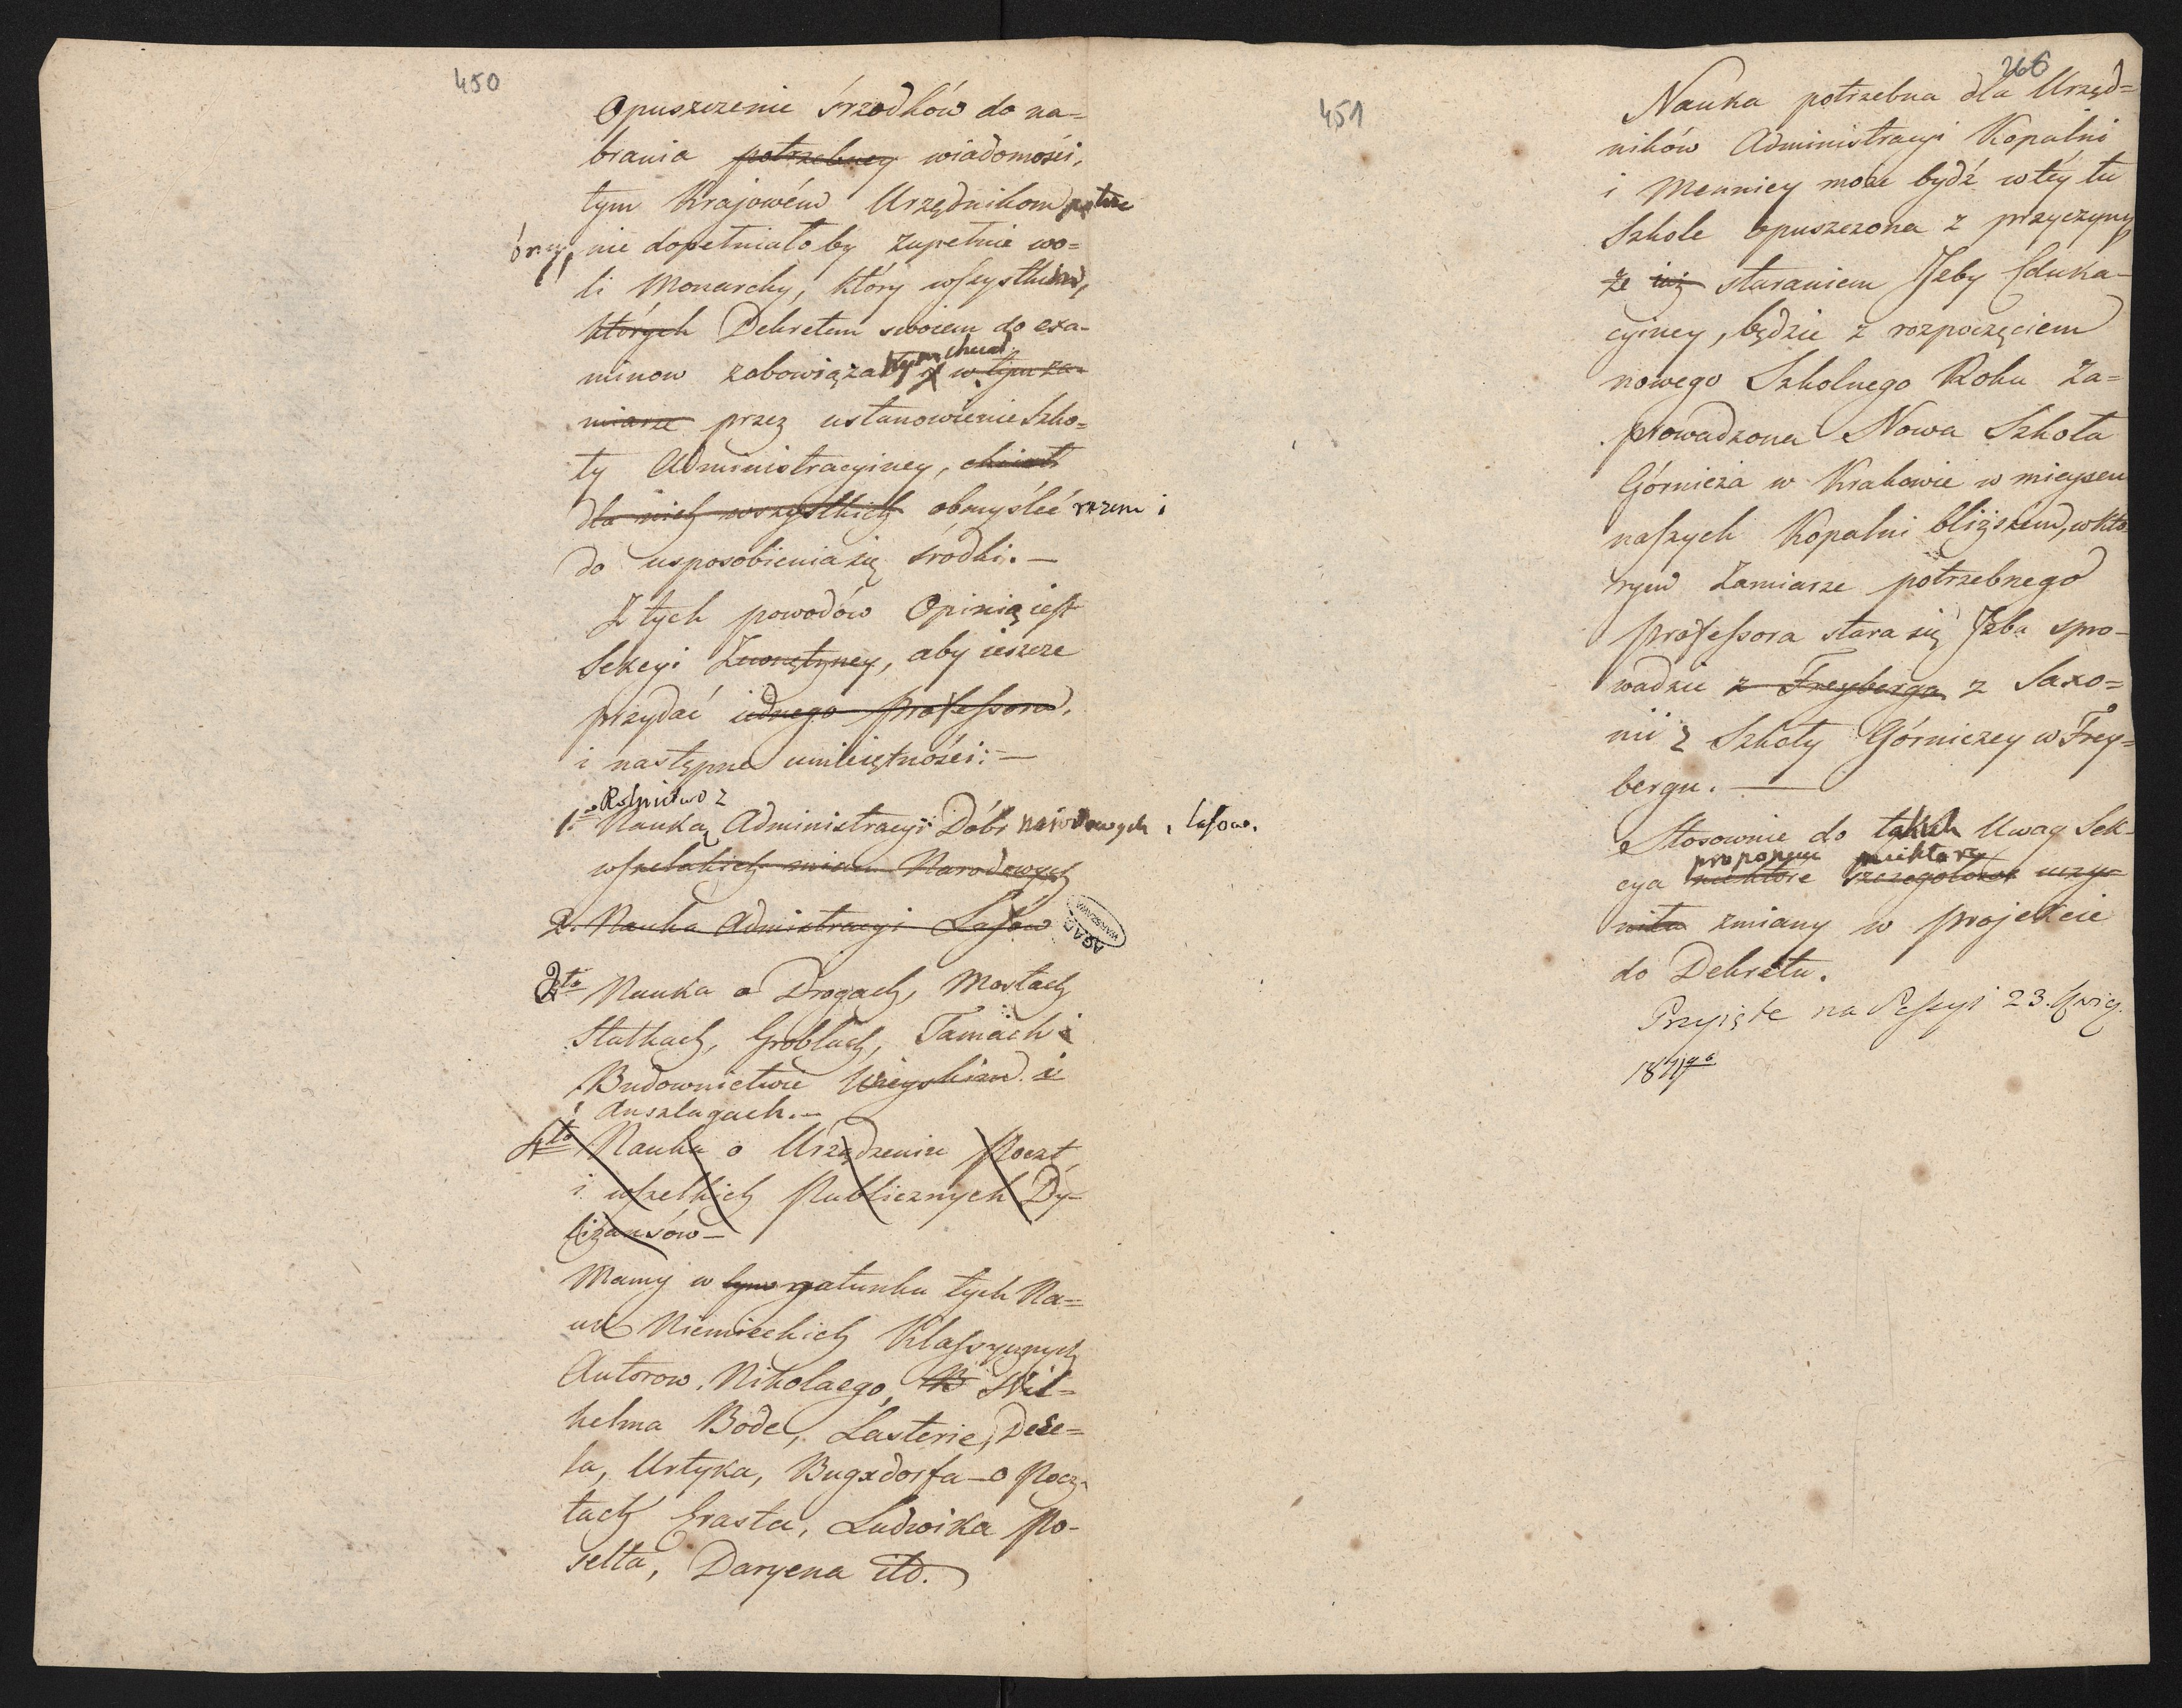 450
Opuszczenie śrzodków do na=
brania potrzebney wiadomości,
tym Krajowém Urzędnikom potrze
bney, nie dopełniałoby zupełnie wo=
li Monarchy, który wszystkim,
których Dekretem swoiem do exa-
minow zobowiązał chciał w tym za-
miarze przez ustanowienie Szko=
ły Administracyiney, chciał
dla nich wszystkich obmyśleć razem i
do usposobienia się środki. —
Z tych powodów Opinią iest
Sekcyi, aby ieszcze
przydać iednego Professora,
i następne umieiętności: —
Rolnictwo z
1.o Nauką Administracyi Dóbr narodowych i Lasow.
wszelakich mian Narodowych
2. Nauka Admistracyi Lasow
AGAD
WARSZAWA
2to Nauka o Drogach, Mostach
Statkach, Groblach, Tamach i
Budownictwie Wieyskim i
i Anszlagach. —
4to Nauka o Urządzeniu Poczt
i wszelkich Publicznych Dy-
liżansów —
Mamy w tym gatunku tych Na=
uk Niemieckich Klassycznych
Autorow. Nikolaego, Wil=
helma Bode, Lasterie, Deze=
la, Urtyka, Bugsdorfa — o Pocz-
tach Erasta, Ludwika Po-
selta, Daryena itd.
451
266
Nauka potrzebna dla Urzęd=
ników Administracyi Kopalni
i Mennicy może bydź w téy tu
Szkole opuszczona z przyczyny
że iuż staraniem Izby Eduka-
cyiney, będzie z rozpoczęciem
nowego Szkolnego Roku za=
prowadzona Nowa Szkoła
Górnicza w Krakowie w mieyscu
naszych Kopalni bliższem, w któ
rym zamiarze potrzebnego
Professora stara się Izba spro-
wadzić z Freyberga z Saxo=
nii z Szkoły Górniczey w Frey=
bergu. —
Stosownie do takich Uwag Sek-
proponuie niektóre
cya niektóre szczegółowe uczy=
niła zmiany w Projekcie
do Dekretu.
Przyięte na Sessyi 23. Kwie.
1811go